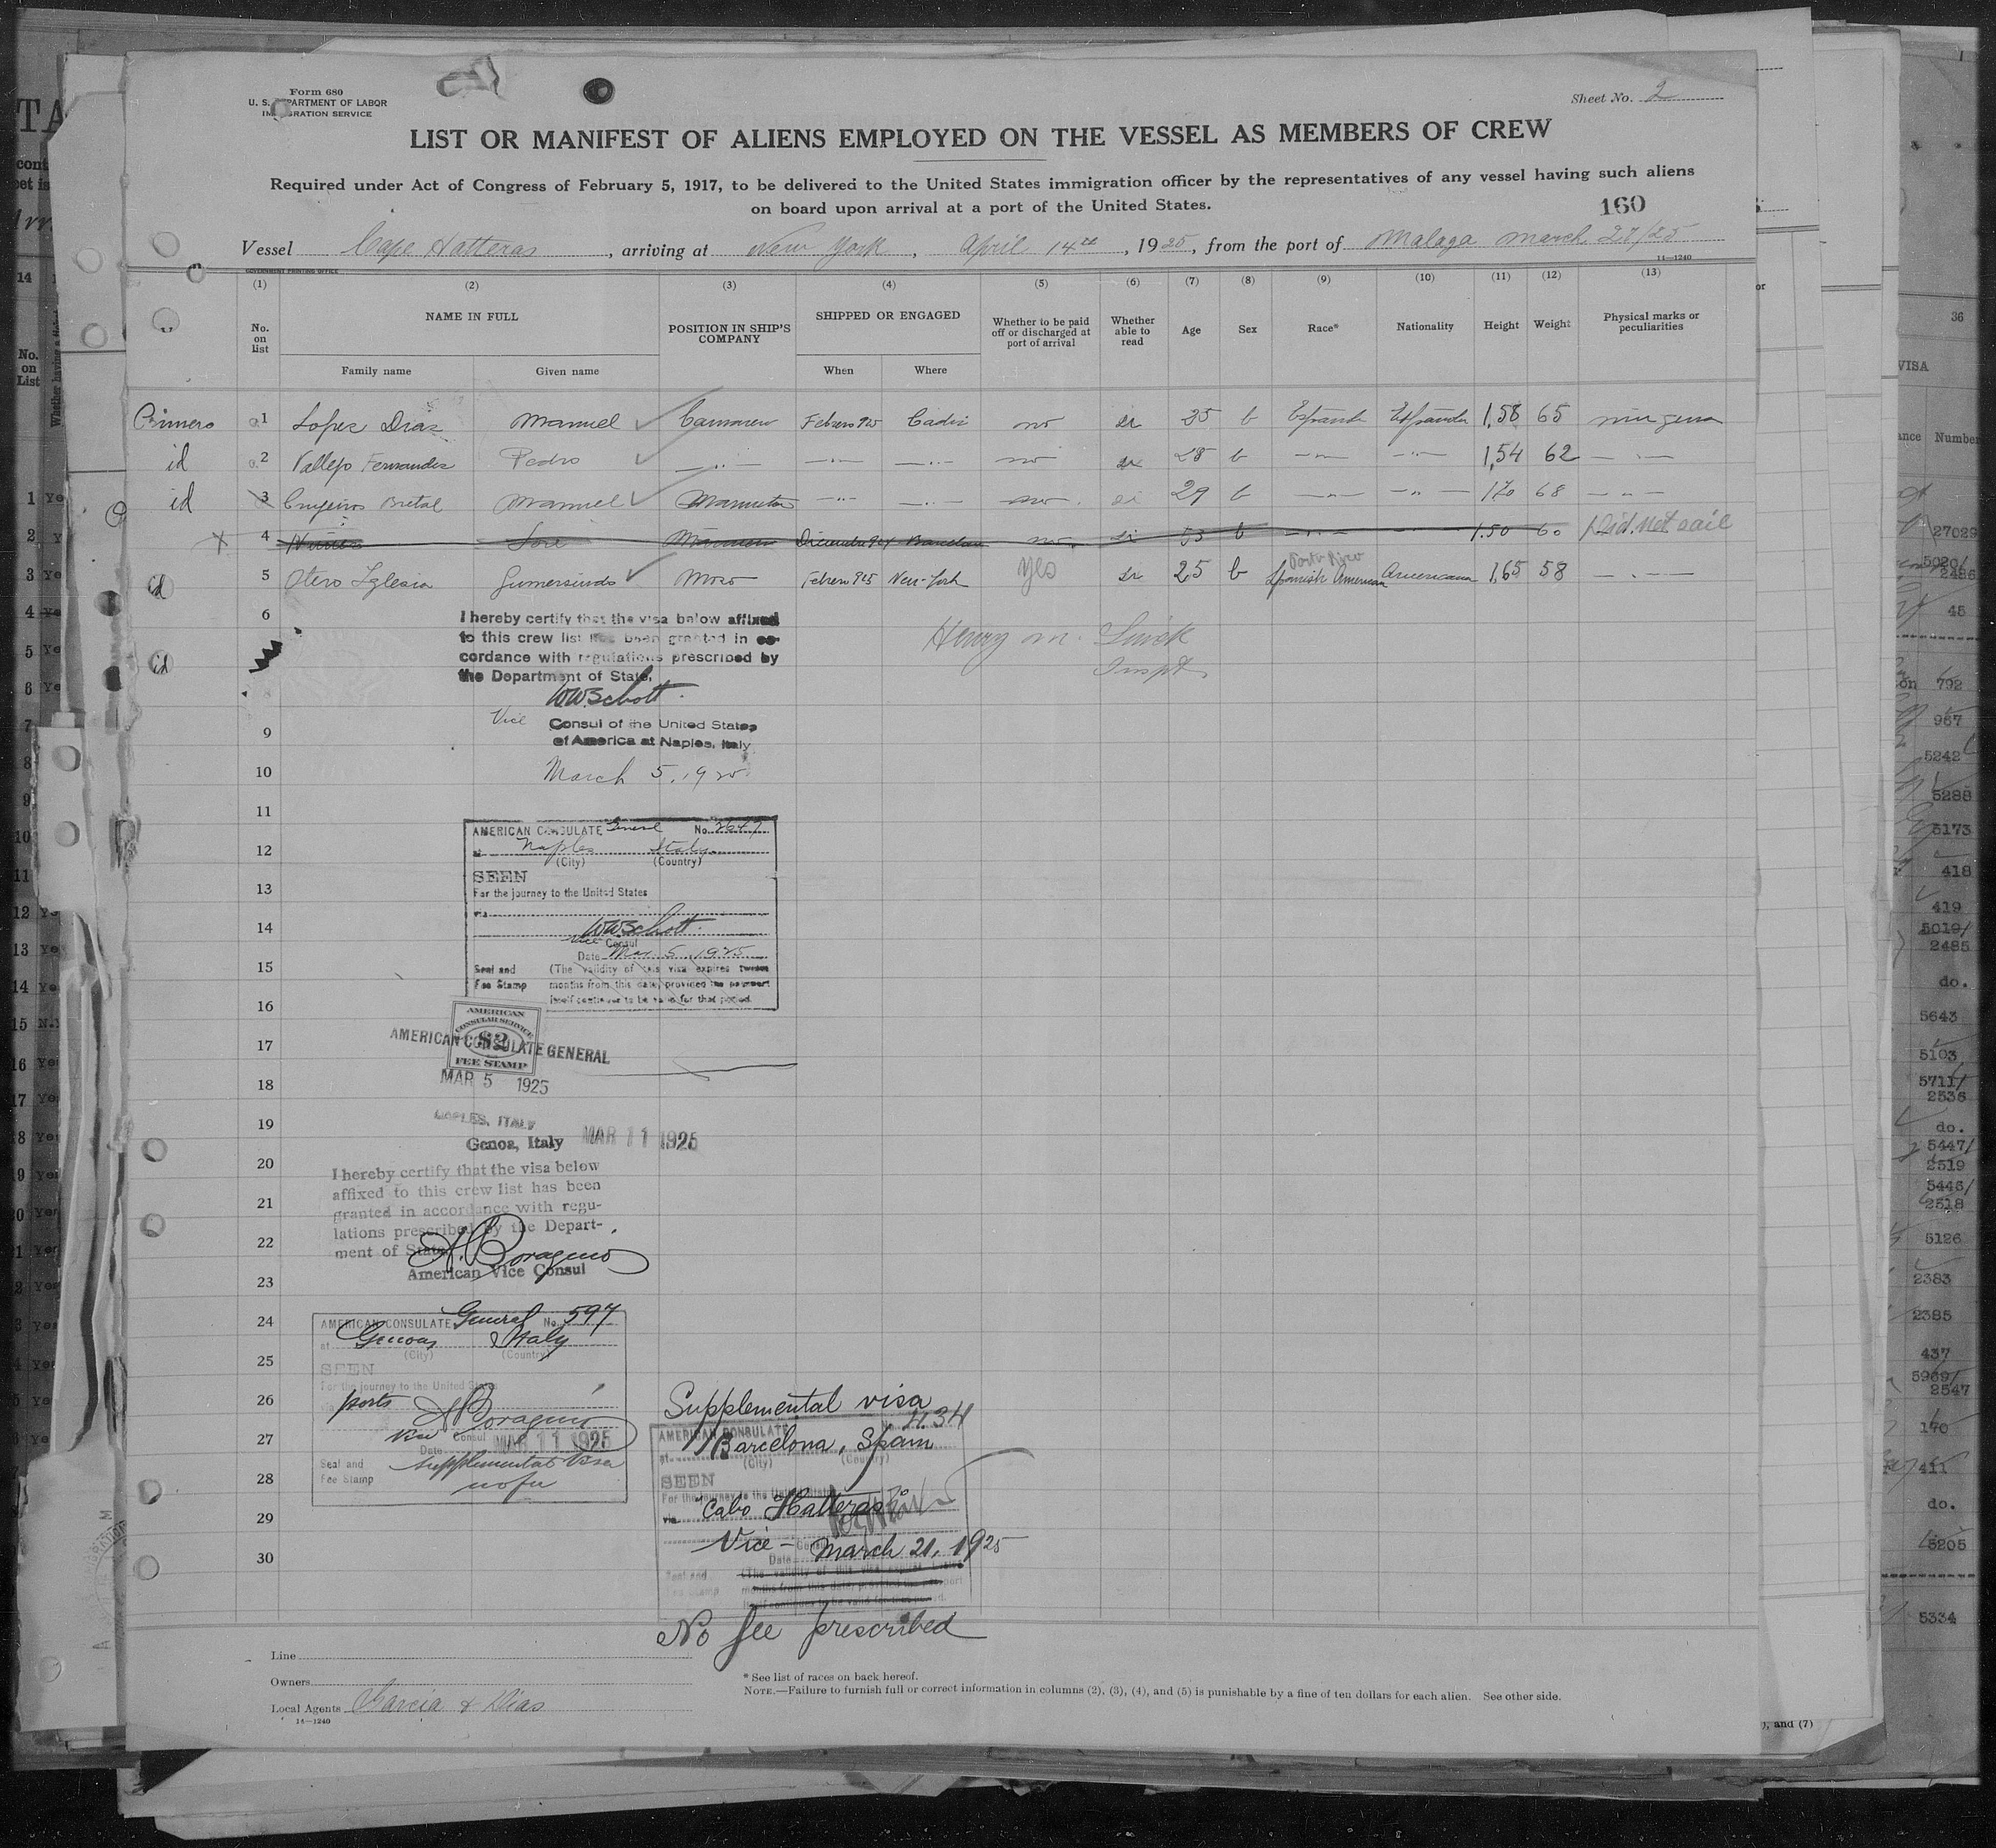 Form 680
U. S. DEPARTMENT OF LABOR
IMMIGRATION SERVICE
Sheet No. 2
LIST OR MANIFEST OF ALIENS EMPLOYED ON THE VESSEL AS MEMBERS OF CREW
Required under Act of Congress of February 5, 1917, to be delivered to the United States immigration officer by the representatives of any vessel having such aliens
on board upon arrival at a port of the United States.
160
Vessel Cape Hatteras, arriving at New York, April 14th, 1925, from the port of Malaga march 27/25
GOVERNMENT PRINTING OFFICE
14—1240
(1) (2) (3) (4) (5) (6) (7) (8) (9) (10) (11) (12) (13)
No. on list NAME IN FULL POSITION IN SHIP'S COMPANY SHIPPED OR ENGAGED Whether to be paid off or discharged at port of arrival Whether able to read Age Sex Race* Nationality Height Weight Physical marks or peculiarities
Family name Given name When Where
Primero 1 Lopez Diaz Manuel Febrero 925 Cadiz no si 25 b 1,58 65
id 2 Vallejo Fernandez Pedro —"— —"— —"— no si 28 b —"— —"— 1,54 62 —"—
id 3 Manuel —"— —"— no si 29 b —"— —"— 170 68 —"—
x 4 Jose Diciembre 924 Barcelona no si 53 b —"— 1.50 60 Did not sail
id 5 Otero Iglesia Gumersindo Mozo Febrero 925 New-York yes si 25 b Porto Rico Spanish American Americana 1,65 58 —"—
6
I hereby certify that the visa below affixed
to this crew list has been granted in ac-
cordance with regulations prescribed by
the Department of State.
Henry M.
Inspt
id
WWSchott.
Vice Consul of the United States
of America at Naples, Italy
March 5, 1925
9
10
11
AMERICAN CONSULATE General No. 2647
12
at Naples Italy
(City) (Country)
SEEN
13
For the journey to the United States
via
14
WWSchott.
Vice Consul
Date Mar. 5, 1925
15
Seal and Fee Stamp
(The validity of this visa expires twelve
months from this date, provided the passport
itself continues to be valid for that period.
16
AMERICAN
CONSULAR SERVICE
$2
FEE STAMP
17
AMERICAN CONSULATE GENERAL
18
MAR 5 1925
19
NAPLES, ITALY
Genoa, Italy MAR 11 1925
20
I hereby certify that the visa below
affixed to this crew list has been
21
granted in accordance with regu-
lations prescribed by the Depart-
22
ment of State.
A. Boragino
American Vice Consul
23
24
AMERICAN CONSULATE General No. 597
at Genoa Italy
(City) (Country)
25
SEEN
For the journey to the United States
26
ports
A Boragino
Vice Consul
Date MAR 11 1925
27
Seal and Fee Stamp
Supplemental Visa
no fee
28
Supplemental visa
AMERICAN CONSULATE
at Barcelona, Spain
(City) (Country)
SEEN
For the journey to the United States
29
via "Cabo Hatteras"
Vice - Consul
Date March 21, 1925
30
Seal and Fee Stamp
(The validity of this visa expires twelve
months from this date, provided the passport
itself continues to be valid for that period.
No fee prescribed
Line
Owners
Local Agents Garcia & Dias
14—1240
* See list of races on back hereof.
NOTE.—Failure to furnish full or correct information in columns (2), (3), (4), and (5) is punishable by a fine of ten dollars for each alien. See other side.
), and (7)
36
VISA
Number
27029
5020/
2486
45
792
967
5242
5288
5173
418
419
5019/
2485
do.
5643
5103
5711/
2536
do.
5447/
2519
5446/
2518
5126
2383
2385
437
5969/
2547
170
411
do.
5205
5334